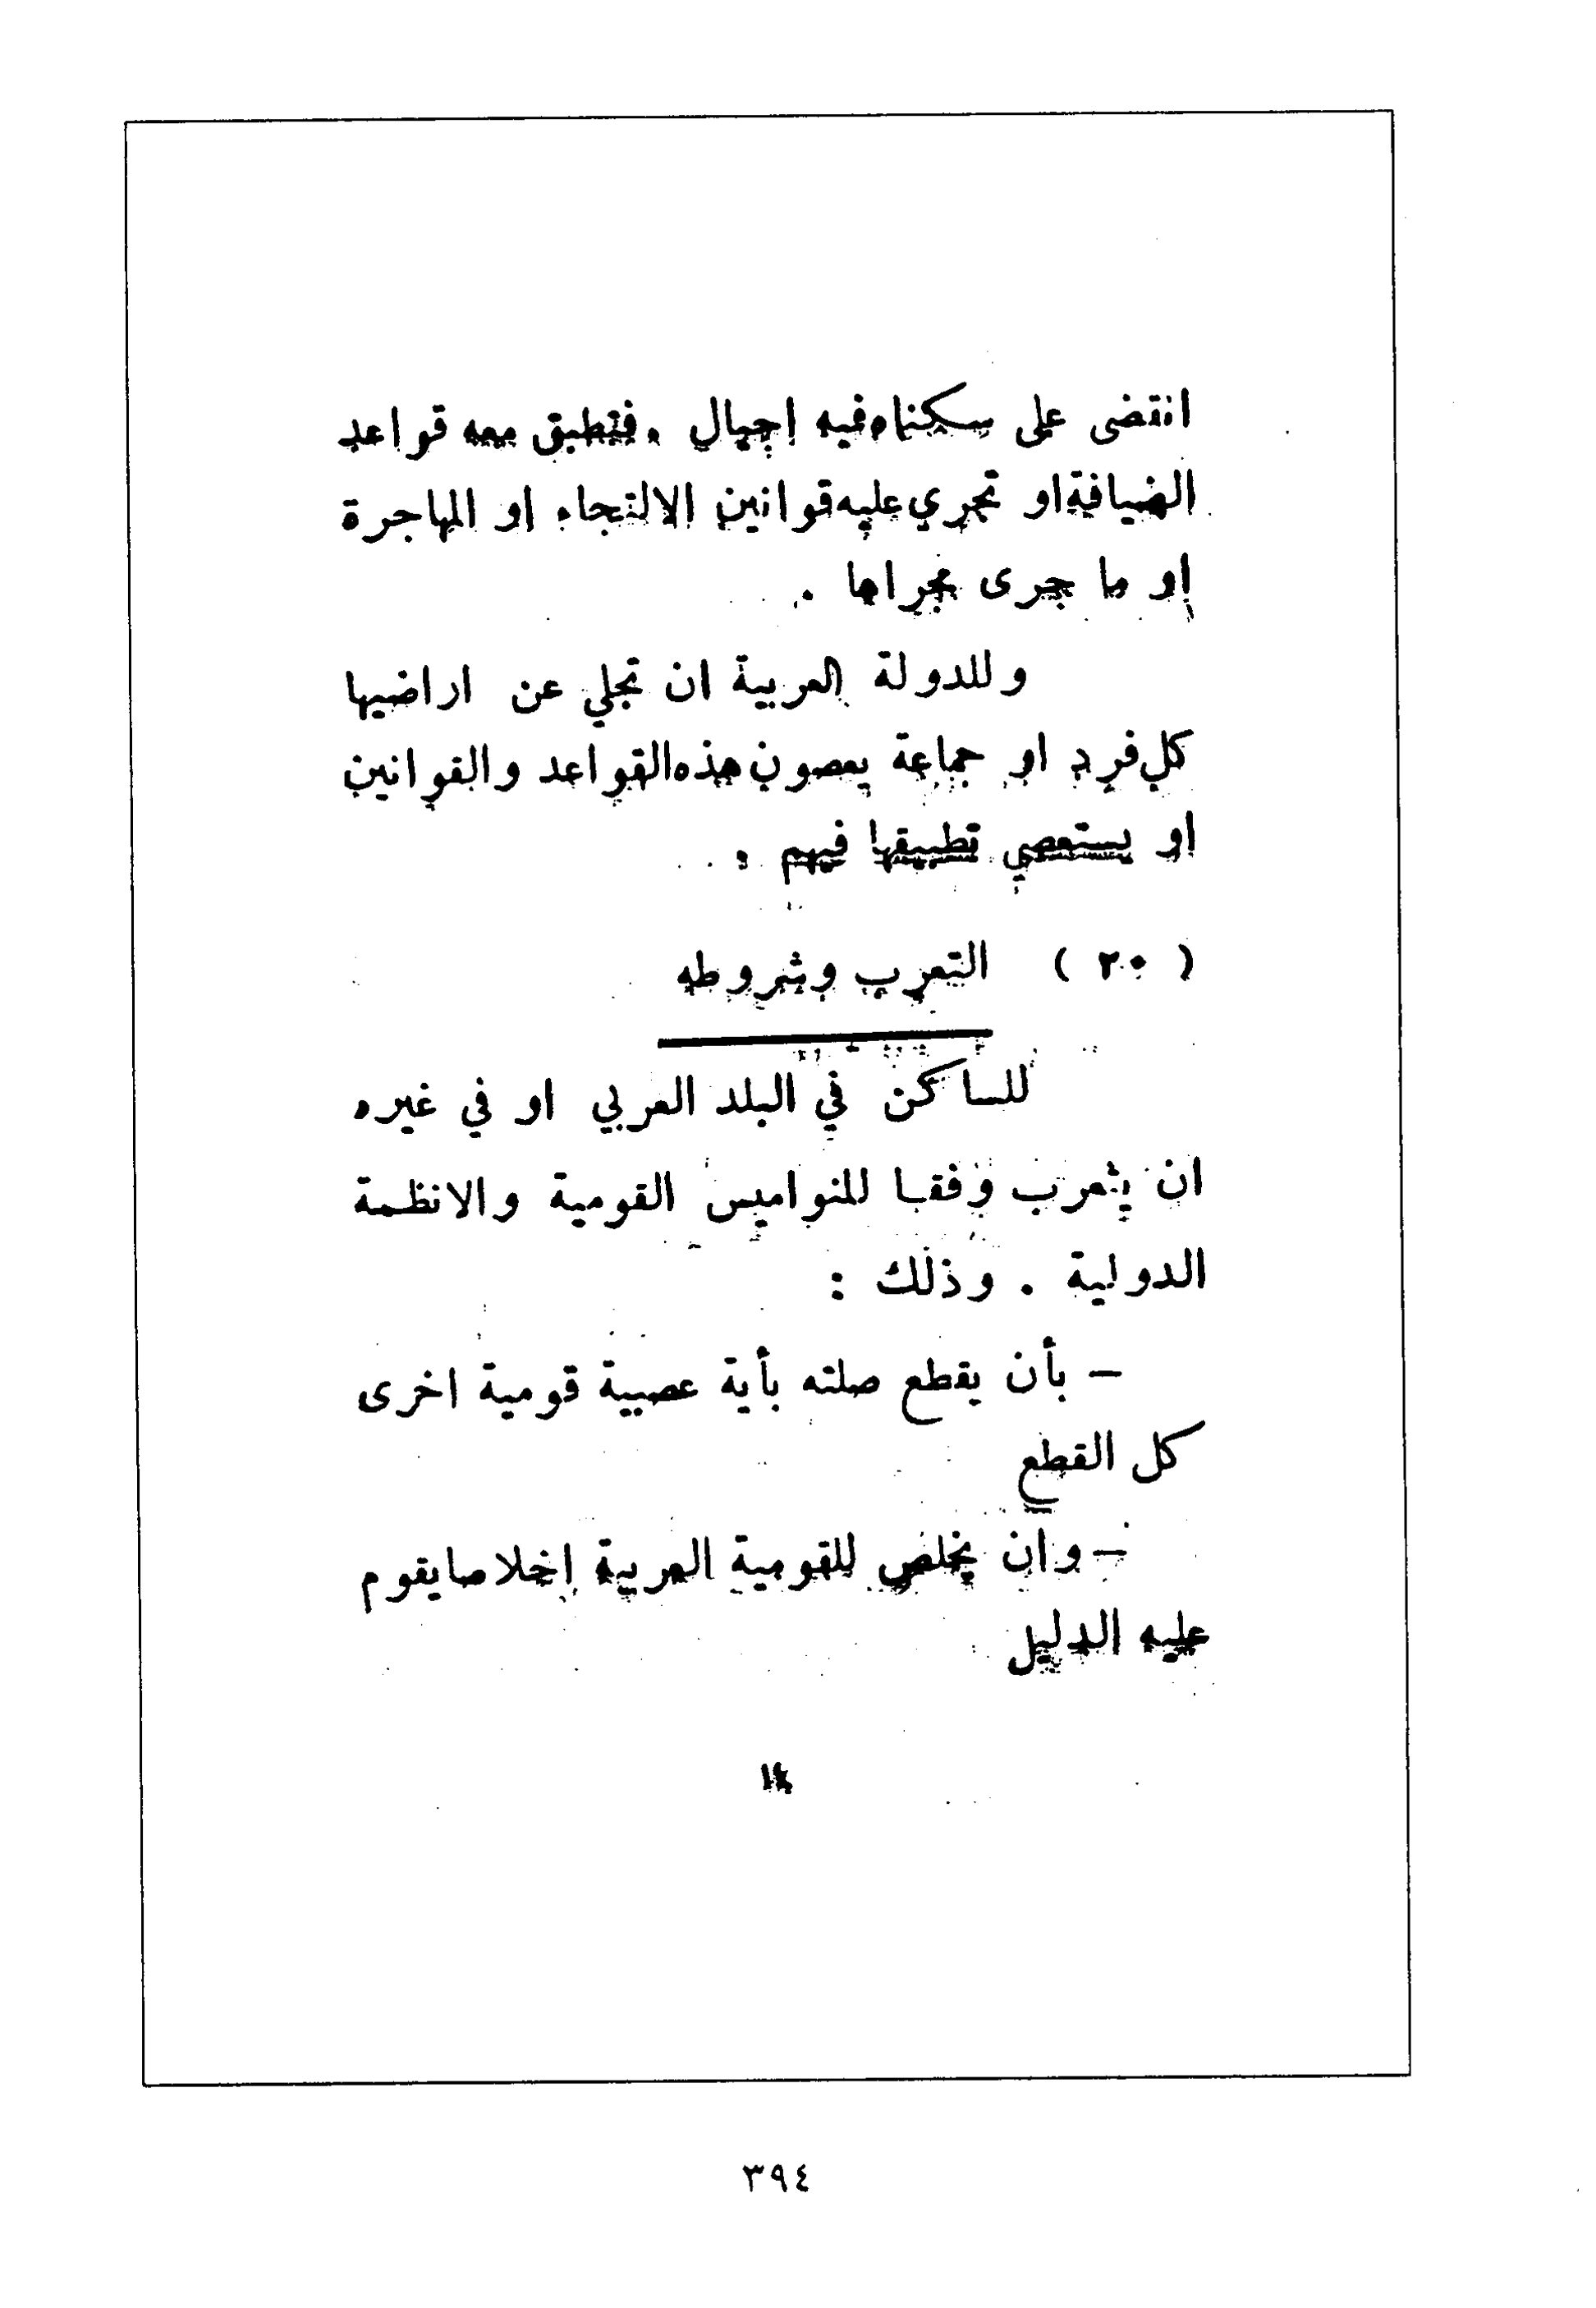 انقضى على سكناه فيه اجيال . فتطبق معه قواعد
الضيافة او تجري عليه قوانين الالتجاء او المهاجرة
او ما جرى مجراها .
وللدولة العربية ان تجلي عن اراضيها
كل فرد او جماعة يعصون هذه القواعد والقوانين
او يستعصي تطبيقها فيهم .
( ٢٠ ) التعرب وشروطه
للساكن في البلد العربي او في غيره
ان يتعرب وفقا للنواميس القومية والانظمة
الدولية . وذلك :
– بأن يقطع صلته بأية عصبية قومية اخرى
كل القطع
– وان يخلص للقومية العربية اخلاصا يقوم
عليه الدليل
٣٩٤